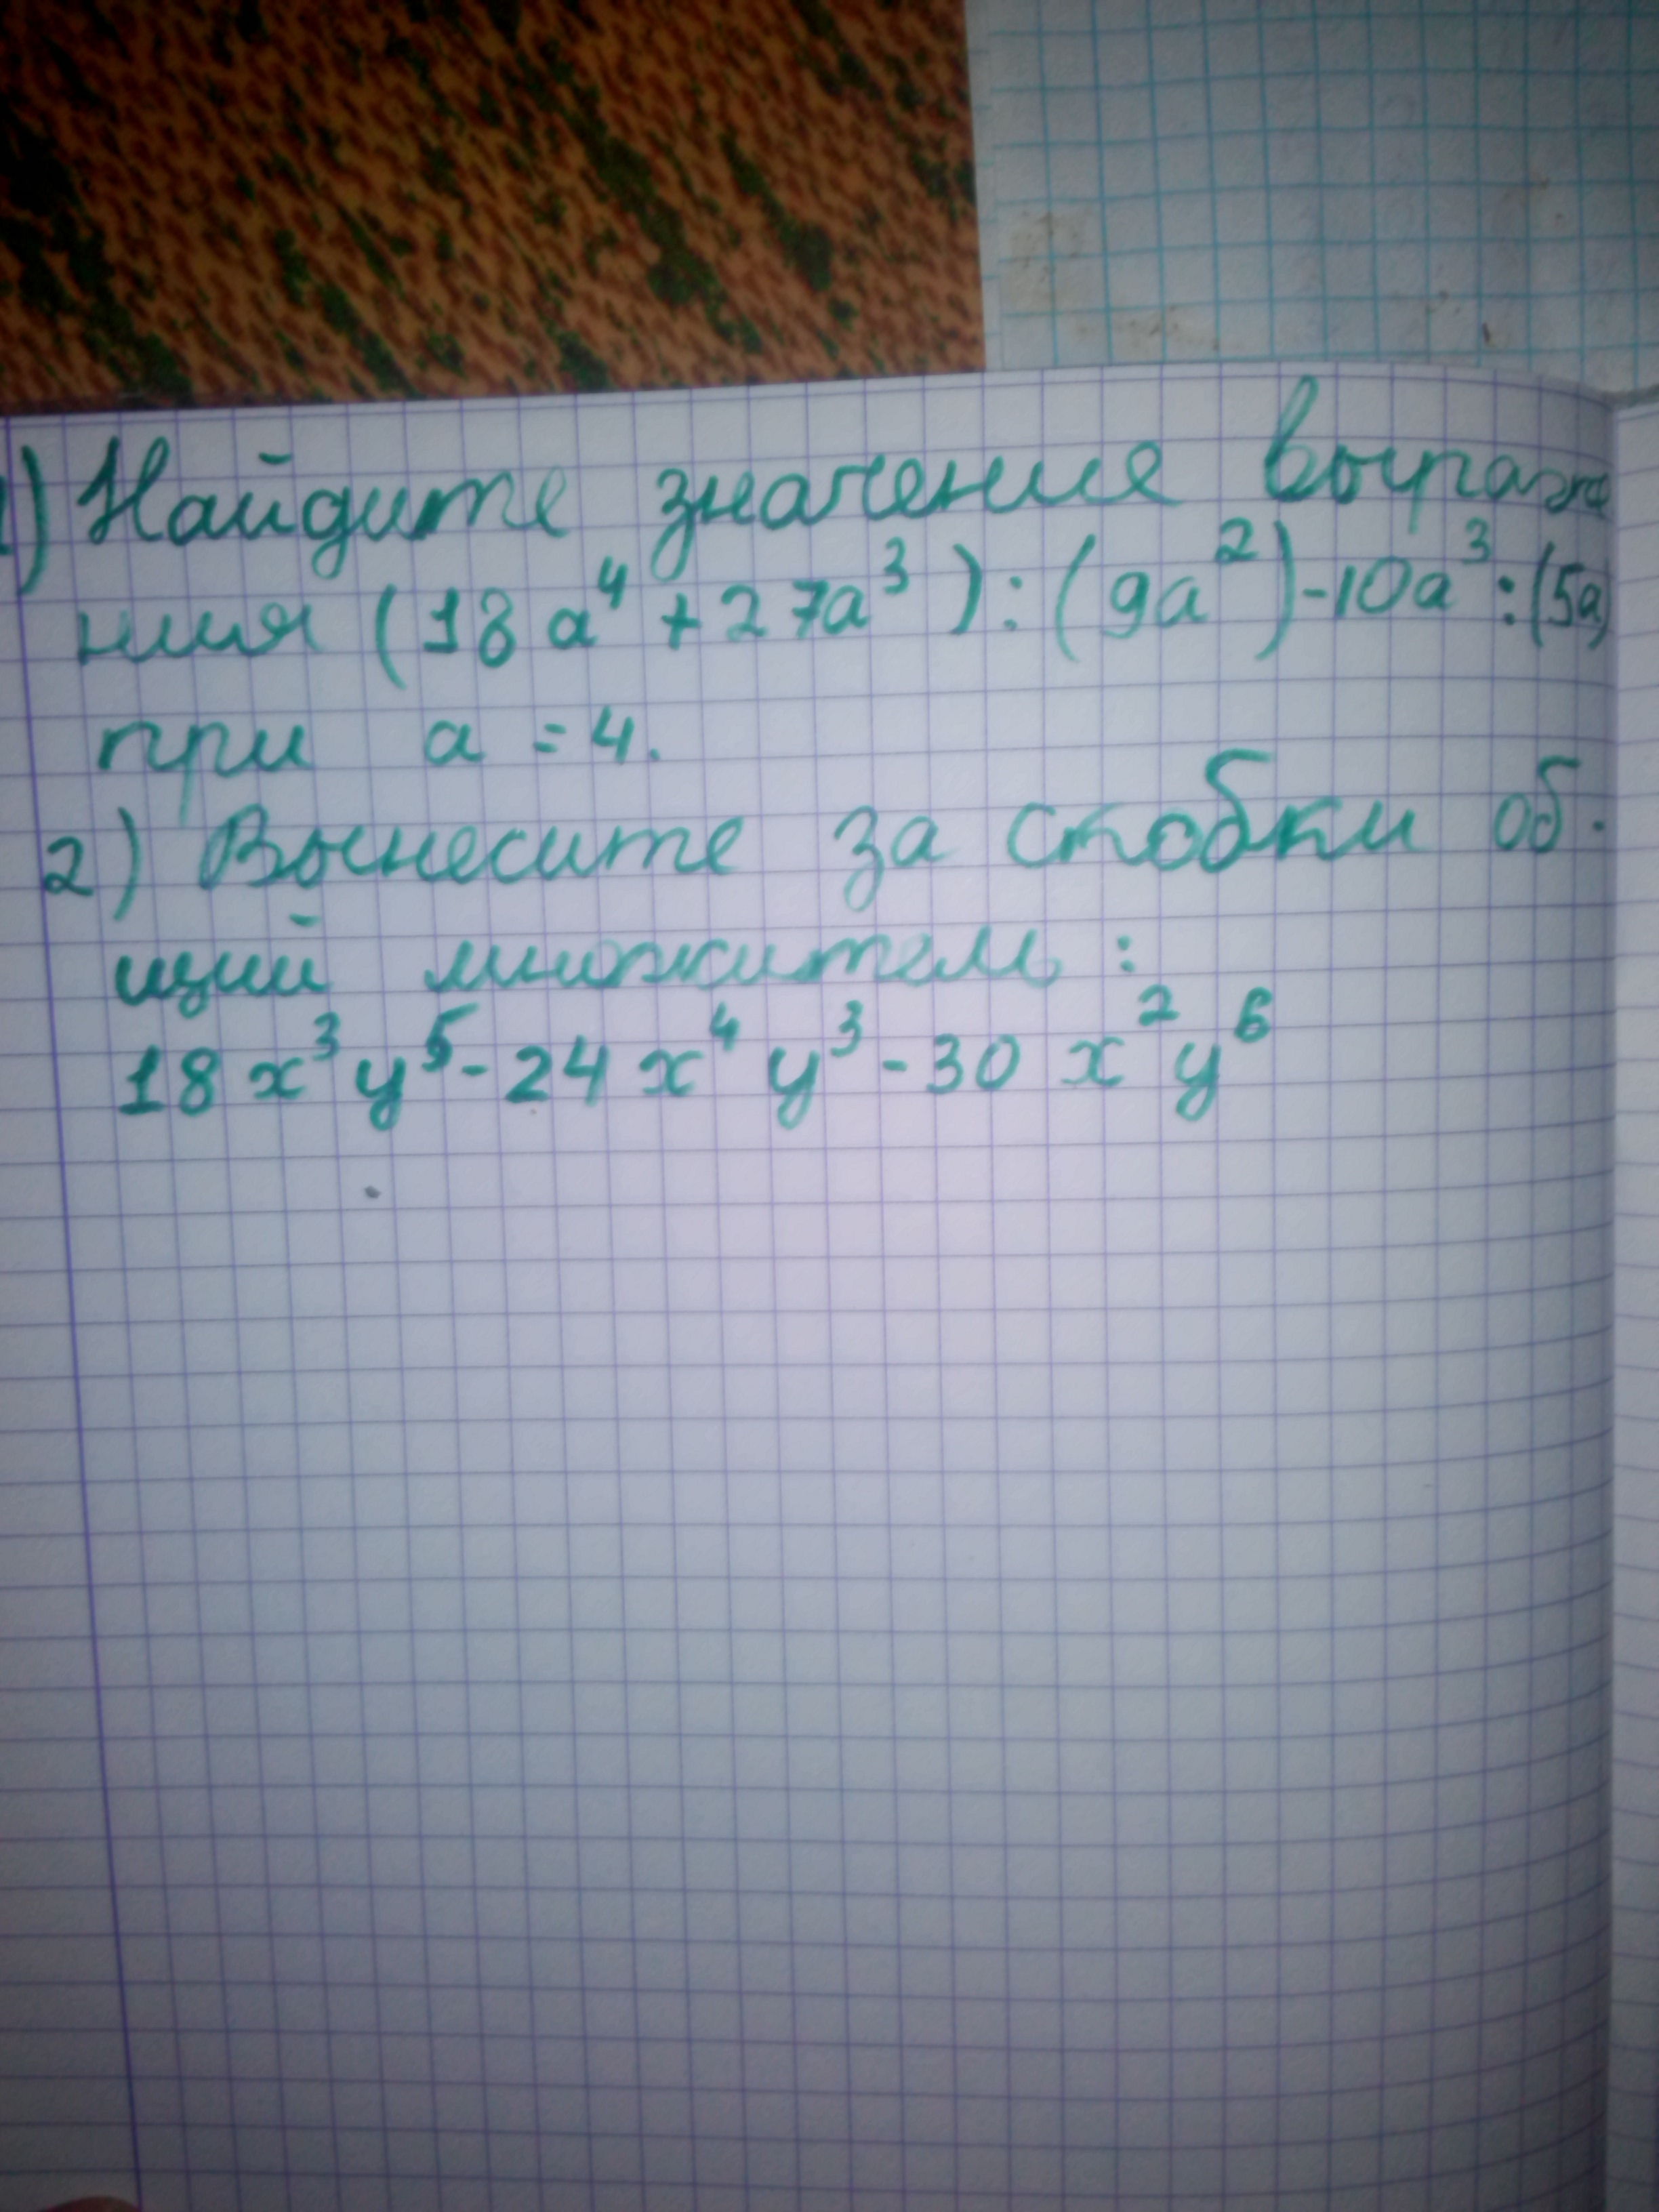 1) Найдите значение выраже
ния (18a⁴+27a³):(9a²)-10a³:(5a)
при a=4.
2) Вынесите за скобки об-
щий множитель:
18x³y⁵-24x⁴y³-30x²y⁶